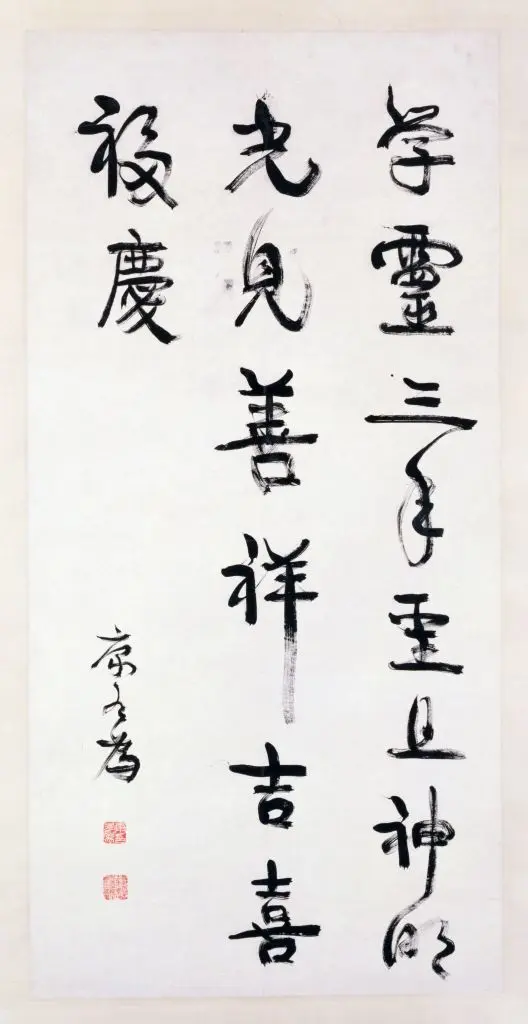 学靈三年聖且神明
先見善祥吉喜
福慶
康有為